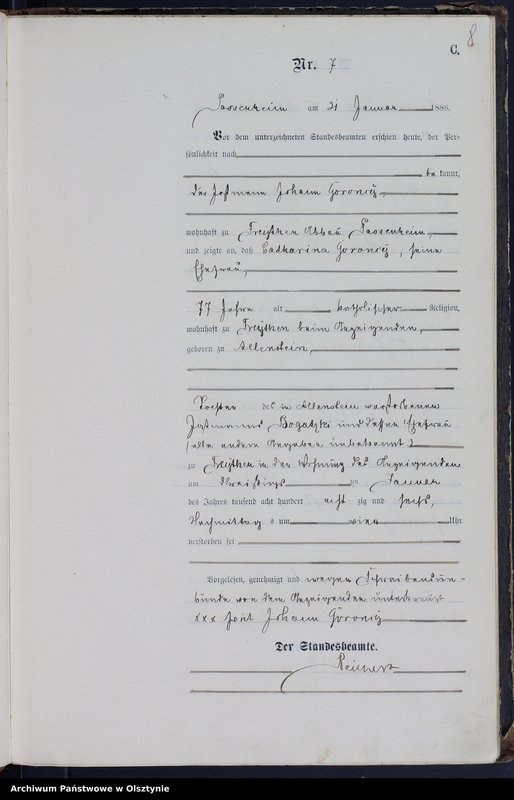 8
C.
Nr. 7
Passenheim am 21 Januar 1886.
Vor dem unterzeichneten Standesbeamten erschien heute, der Per-
sönlichkeit nach
be kannt,
der Joh. Goroncy,
wohnhaft zu Abbau Passenheim,
und zeigte an, daß Catharina Goroncy, seine
Ehefrau,
77 Jahre alt katholischer Religion,
wohnhaft zu beim Anzeigenden,
geboren zu Allenstein,
Tochter des in Allenstein verstorbenen
Bogatzki und dessen Ehefrau
(alle andere Angaben unbekannt)
zu in der Wohnung des Anzeigenden
am ten Januar
des Jahres tausend acht hundert acht zig und sechs,
Nachmittag s um vier Uhr
verstorben sei
Vorgelesen, genehmigt und wegen Schreibensun-
kunde von dem Anzeigenden unterkreuzt
xxx Johann Goroncy
Der Standesbeamte.
Reichert
Archiwum Państwowe w Olsztynie